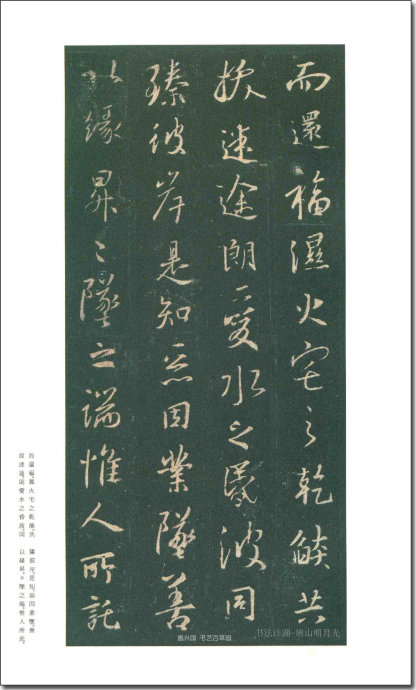 而還福濕火宅之乾燄共
拔迷途朗愛水之昏波同
臻彼岸是知惡因業墜善
以緣昇〻墜之端惟人所託
而還福。濕火宅之乾燄，共
拔迷途；朗愛水之昏波，同
臻彼岸。是知惡因業墜，善
以緣昇，々墜之端，惟人所託。
书艺百草园
书法江湖·唐山明月光